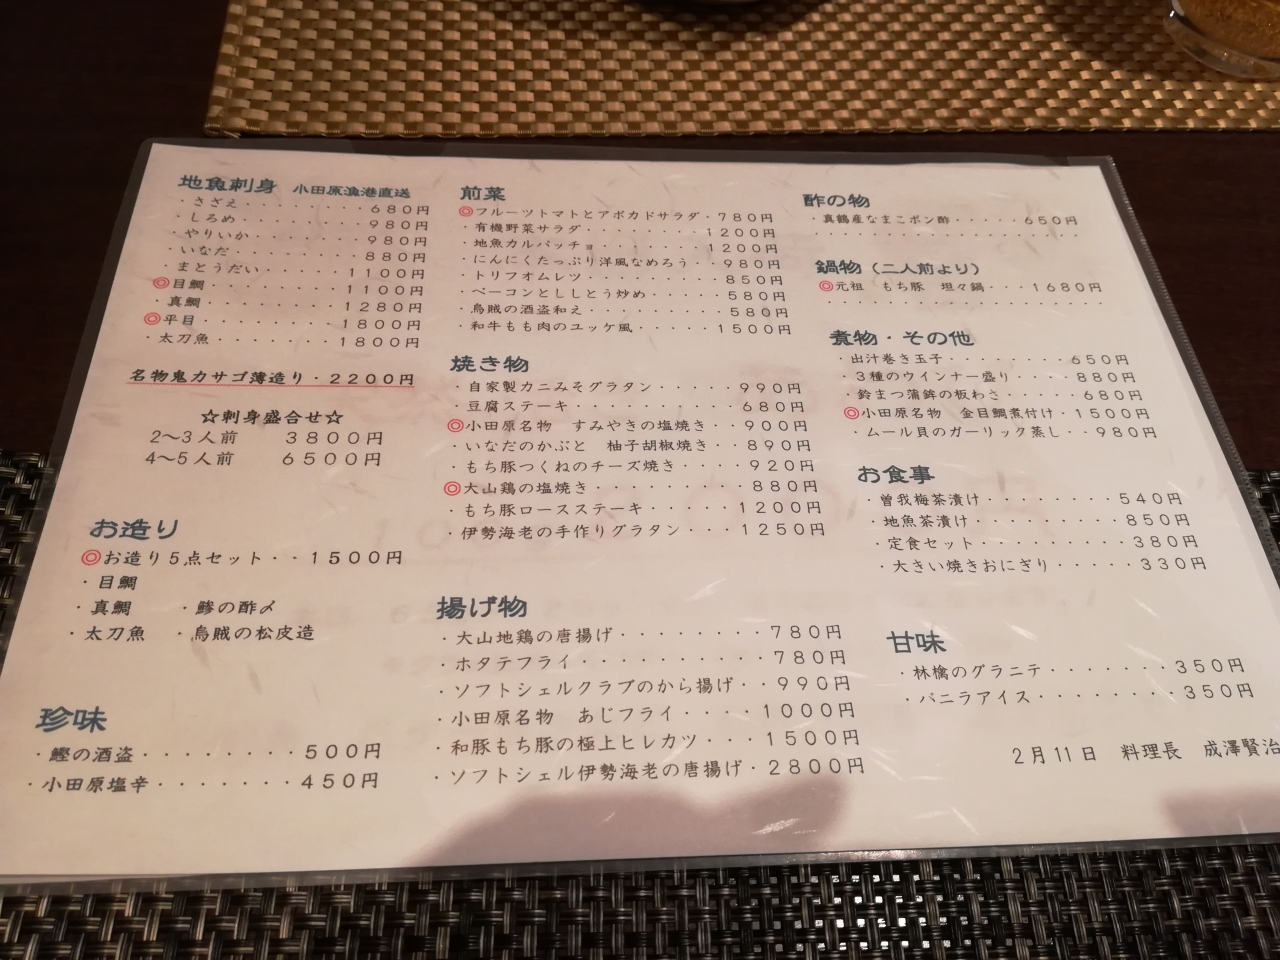 地魚刺身　小田原漁港直送
・さざえ・・・・・・・・６８０円
・しろめ・・・・・・・・９８０円
・やりいか・・・・・・・９８０円
・いなだ・・・・・・・・８８０円
・まとうだい・・・・・１１００円
◎目鯛・・・・・・・・１１００円
・真鯛・・・・・・・・１２８０円
◎平目・・・・・・・・１８００円
・太刀魚・・・・・・・１８００円
名物鬼カサゴ薄造り・２２００円
☆刺身盛合せ☆
２〜３人前　３８００円
４〜５人前　６５００円
お造り
◎お造り５点セット・・１５００円
・目鯛
・真鯛　・鯵の酢〆
・太刀魚　・烏賊の松皮造
珍味
・鰹の酒盗・・・・・・・・５００円
・小田原塩辛・・・・・・・４５０円
前菜
◎フルーツトマトとアボカドサラダ・７８０円
・有機野菜サラダ・・・・・・・１２００円
・地魚カルパッチョ・・・・・・１２００円
・にんにくたっぷり洋風なめろう・・９８０円
・トリフオムレツ・・・・・・・・８５０円
・ベーコンとししとう炒め・・・・５８０円
・烏賊の酒盗和え・・・・・・・・５８０円
・和牛もも肉のユッケ風・・・・・１５００円
焼き物
・自家製カニみそグラタン・・・・９９０円
・豆腐ステーキ・・・・・・・・・６８０円
◎小田原名物　すみやきの塩焼き・・９００円
・いなだのかぶと　柚子胡椒焼き・・８９０円
・もち豚つくねのチーズ焼き・・・・９２０円
◎大山鶏の塩焼き・・・・・・・・８８０円
・もち豚ロースステーキ・・・・１２００円
・伊勢海老の手作りグラタン・・・１２５０円
揚げ物
・大山地鶏の唐揚げ・・・・・・・７８０円
・ホタテフライ・・・・・・・・・・７８０円
・ソフトシェルクラブのから揚げ・・９９０円
・小田原名物　あじフライ・・・・１０００円
・和豚もち豚の極上ヒレカツ・・・１５００円
・ソフトシェル伊勢海老の唐揚げ・２８００円
酢の物
・真鶴産なまこポン酢・・・・・６５０円
鍋物（二人前より）
◎元祖　もち豚　坦々鍋・・・１６８０円
煮物・その他
・出汁巻き玉子・・・・・・・・６５０円
・３種のウインナー盛り・・・・８８０円
・鈴まつ蒲鉾の板わさ・・・・・６８０円
◎小田原名物　金目鯛煮付け・１５００円
・ムール貝のガーリック蒸し・・９８０円
お食事
・曽我梅茶漬け・・・・・・・・５４０円
・地魚茶漬け・・・・・・・・・８５０円
・定食セット・・・・・・・・・３８０円
・大きい焼きおにぎり・・・・・３３０円
甘味
・林檎のグラニテ・・・・・・・３５０円
・バニラアイス・・・・・・・・３５０円
２月１１日　料理長　成澤賢治